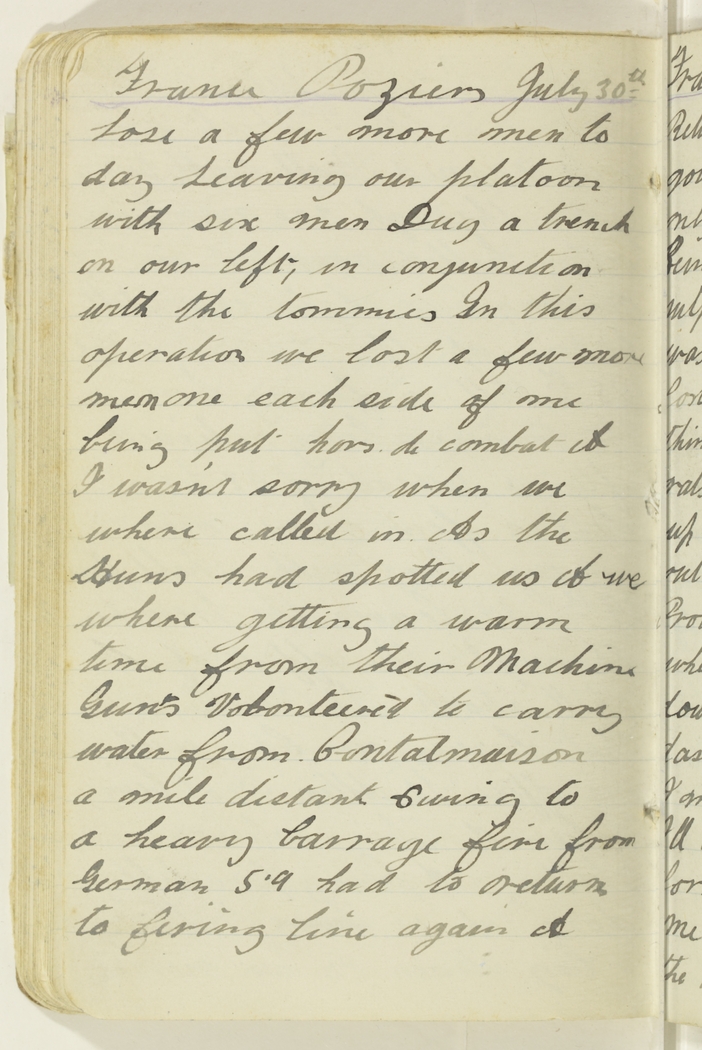 France Poziers July 30th
Lose a few more men to
day Leaving our platoon
with six men Dug a trench
on our left, in conjunction
with the tommies In this
operation we lost a few more
men one each side of me
being put hors. de combat &
I wasn't sorry when we
where called in. As the
Huns had spotted us & we
where getting a warm
time from their Machine
Gun's Volonteered to carry
water from. Contalmaison
a mile distant Owing to
a heavy barrage fire from
German 5.9 had to return
to fireing line again &